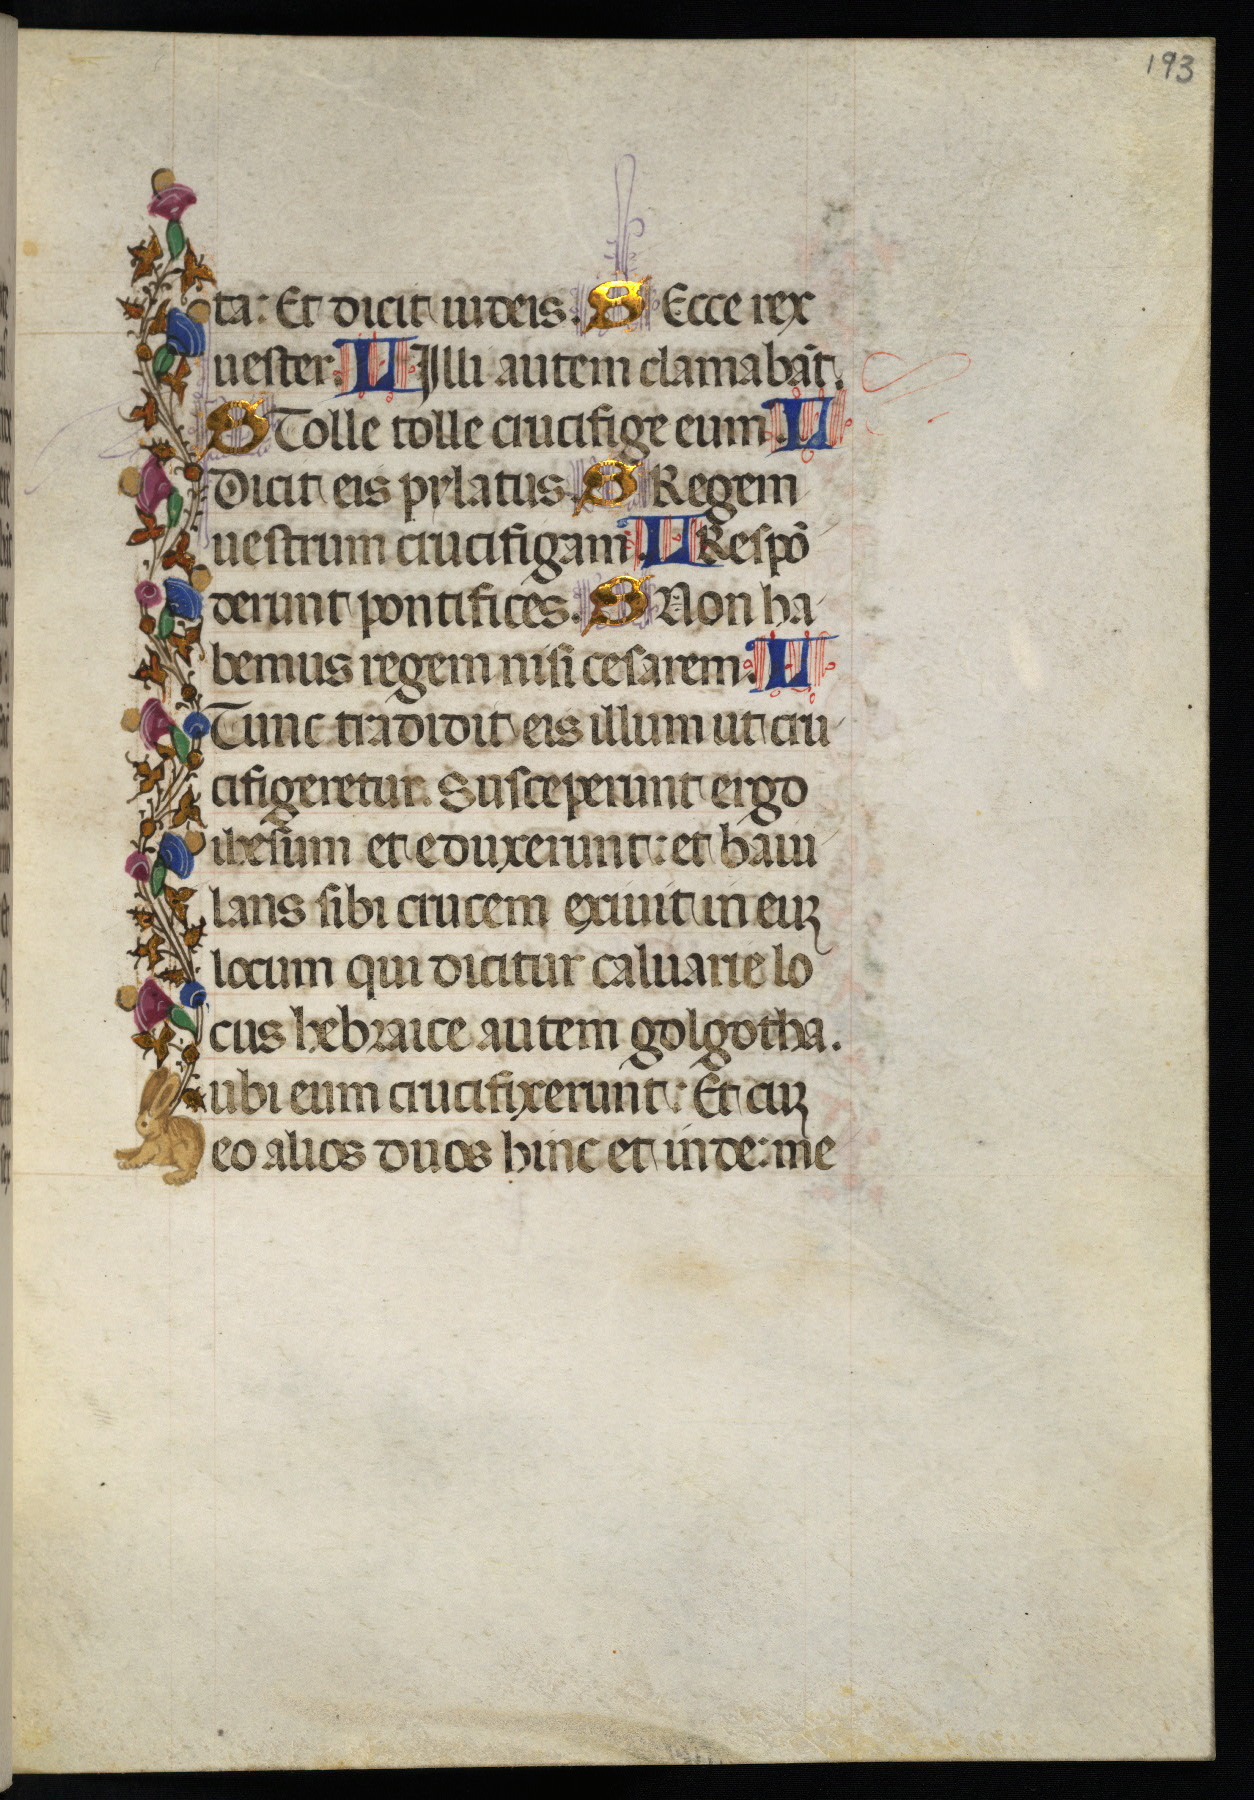 193
ta: Et dicit iudeis. S Ecce rex
uester. L Illi autem clamabāt.
S Tolle tolle crucifige eum. L
Dicit eis pylatus. S Regem
uestrum crucifigam. L Respō
derunt pontifices. S Non ha
bemus regem nisi cesarem. L
Tunc tradidit eis illum ut cru
cifigeretur. Susceperunt ergo
ihesum et eduxerunt: et baiu
lans sibi crucem exiuit in euꝫ
locum qui dicitur caluarie lo
cus hebraice autem golgotha.
ubi eum crucifixerunt: Et cuꝫ
eo alios duos hinc et inde: me